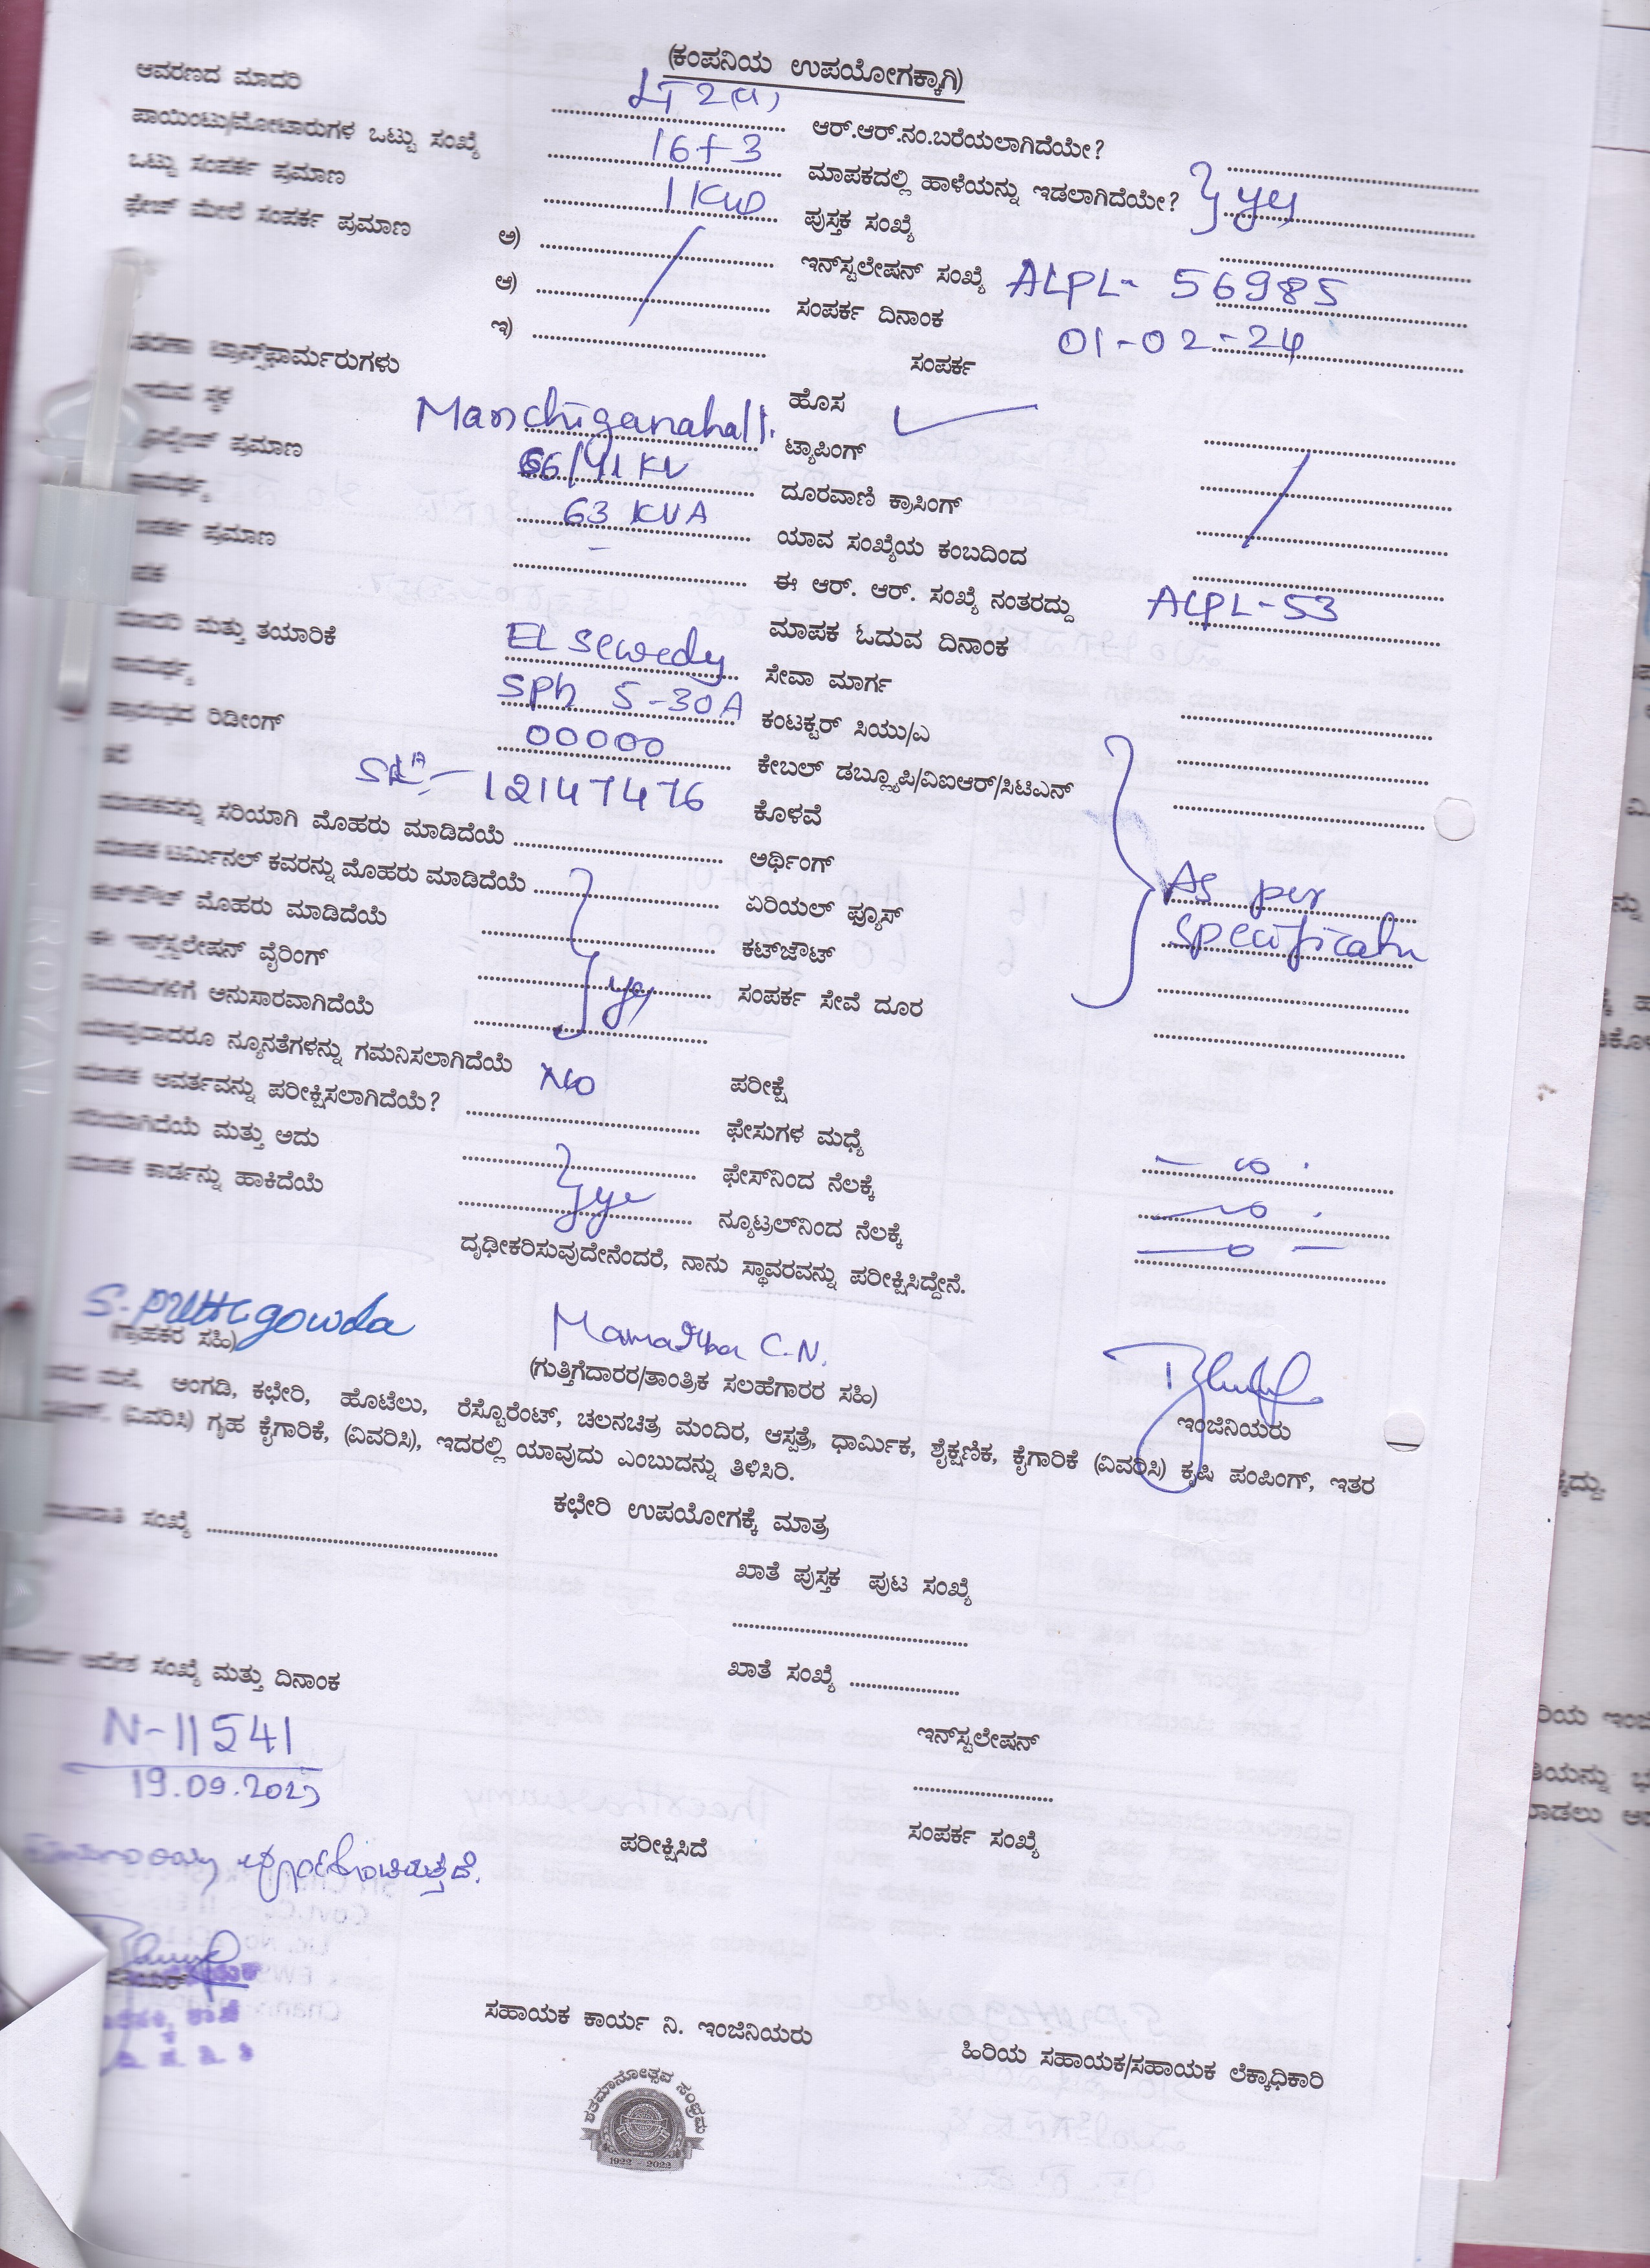 (ಕಂಪನಿಯ ಉಪಯೋಗಕ್ಕಾಗಿ)
ಆವರಣದ ಮಾದರಿ LT 2(a) ಆರ್.ಆರ್.ನಂ.ಬರೆಯಲಾಗಿದೆಯೇ?
ಪಾಯಿಂಟು/ಮೋಟಾರುಗಳ ಒಟ್ಟು ಸಂಖ್ಯೆ 16+3 ಮಾಪಕದಲ್ಲಿ ಹಾಳೆಯನ್ನು ಇಡಲಾಗಿದೆಯೇ? yes
ಒಟ್ಟು ಸಂಪರ್ಕ ಪ್ರಮಾಣ 1 KW ಪುಸ್ತಕ ಸಂಖ್ಯೆ
ಫೇಜ್ ಮೇಲೆ ಸಂಪರ್ಕ ಪ್ರಮಾಣ ಅ) ಇನ್‌ಸ್ಟಲೇಷನ್ ಸಂಖ್ಯೆ ALPL- 56985
ಆ) ಸಂಪರ್ಕ ದಿನಾಂಕ 01-02-24
ಇ) ಸಂಪರ್ಕ
ಟ್ರಾನ್ಸ್‌ಫಾರ್ಮರುಗಳು ಹೊಸ ✓
ಸ್ಥಳ Manchiganahalli ಟ್ಯಾಪಿಂಗ್
ಪ್ರಮಾಣ 66/11 KV ದೂರವಾಣಿ ಕ್ರಾಸಿಂಗ್
63 KVA ಯಾವ ಸಂಖ್ಯೆಯ ಕಂಬದಿಂದ
ಪ್ರಮಾಣ – ಈ ಆರ್. ಆರ್. ಸಂಖ್ಯೆ ನಂತರದ್ದು ALPL-53
ಮಾಪಕ ಓದುವ ದಿನಾಂಕ
ಮಾದರಿ ಮತ್ತು ತಯಾರಿಕೆ EL Sewedy ಸೇವಾ ಮಾರ್ಗ
SPh 5-30A ಕಂಟಕ್ಟರ್ ಸಿಯು/ಎ
ಪ್ರಾರಂಭದ ರಿಡೀಂಗ್ 00000 ಕೇಬಲ್ ಡಬ್ಲ್ಯೂಪಿ/ವಿಐಆರ್/ಸಿಟಿಎನ್
12147476 ಕೊಳವೆ
ಮಾಪಕವನ್ನು ಸರಿಯಾಗಿ ಮೊಹರು ಮಾಡಿದೆಯೆ ಅರ್ಥಿಂಗ್
ಮಾಪಕ ಟರ್ಮಿನಲ್ ಕವರನ್ನು ಮೊಹರು ಮಾಡಿದೆಯೆ ಏರಿಯಲ್ ಫ್ಯೂಸ್ As per
ಕಟ್‌ಔಟ್ ಮೊಹರು ಮಾಡಿದೆಯೆ ಕಟ್‌ಔಟ್ specificatn
ಈ ಇನ್‌ಸ್ಟಲೇಷನ್ ವೈರಿಂಗ್ yes ಸಂಪರ್ಕ ಸೇವೆ ದೂರ
ನಿಯಮಗಳಿಗೆ ಅನುಸಾರವಾಗಿದೆಯೆ
ಯಾವುದಾದರೂ ನ್ಯೂನತೆಗಳನ್ನು ಗಮನಿಸಲಾಗಿದೆಯೆ No ಪರೀಕ್ಷೆ
ಮಾಪಕ ಆವರ್ತವನ್ನು ಪರೀಕ್ಷಿಸಲಾಗಿದೆಯೆ? ಫೇಸುಗಳ ಮಧ್ಯೆ
ಸರಿಯಾಗಿದೆಯೆ ಮತ್ತು ಅದು ಫೇಸ್‌ನಿಂದ ನೆಲಕ್ಕೆ
ಮಾಪಕ ಕಾರ್ಡನ್ನು ಹಾಕಿದೆಯೆ yes ನ್ಯೂಟ್ರಲ್‌ನಿಂದ ನೆಲಕ್ಕೆ
ದೃಢೀಕರಿಸುವುದೇನೆಂದರೆ, ನಾನು ಸ್ಥಾವರವನ್ನು ಪರೀಕ್ಷಿಸಿದ್ದೇನೆ.
S. Puttegowda Mamatha C.N.
(ಗ್ರಾಹಕರ ಸಹಿ) (ಗುತ್ತಿಗೆದಾರರ/ತಾಂತ್ರಿಕ ಸಲಹೆಗಾರರ ಸಹಿ) ಇಂಜಿನಿಯರು
ಮನೆ, ಅಂಗಡಿ, ಕಛೇರಿ, ಹೊಟೆಲು, ರೆಸ್ಟೊರೆಂಟ್, ಚಲನಚಿತ್ರ ಮಂದಿರ, ಆಸ್ಪತ್ರೆ, ಧಾರ್ಮಿಕ, ಶೈಕ್ಷಣಿಕ, ಕೈಗಾರಿಕೆ (ವಿವರಿಸಿ) ಕೃಷಿ ಪಂಪಿಂಗ್, ಇತರ
(ವಿವರಿಸಿ) ಗೃಹ ಕೈಗಾರಿಕೆ, (ವಿವರಿಸಿ), ಇದರಲ್ಲಿ ಯಾವುದು ಎಂಬುದನ್ನು ತಿಳಿಸಿರಿ.
ಕಛೇರಿ ಉಪಯೋಗಕ್ಕೆ ಮಾತ್ರ
ಸಂಖ್ಯೆ
ಖಾತೆ ಪುಸ್ತಕ ಪುಟ ಸಂಖ್ಯೆ
ಕಾರ್ಯ ಆದೇಶ ಸಂಖ್ಯೆ ಮತ್ತು ದಿನಾಂಕ ಖಾತೆ ಸಂಖ್ಯೆ
N-11541 ಇನ್‌ಸ್ಟಲೇಷನ್
19.09.2023
ಪರೀಕ್ಷಿಸಿದೆ ಸಂಪರ್ಕ ಸಂಖ್ಯೆ
ಸಹಾಯಕ ಕಾರ್ಯ ನಿ. ಇಂಜಿನಿಯರು ಹಿರಿಯ ಸಹಾಯಕ/ಸಹಾಯಕ ಲೆಕ್ಕಾಧಿಕಾರಿ
ಶತಮಾನೋತ್ಸವ ಸಂಭ್ರಮ
1922 - 2022